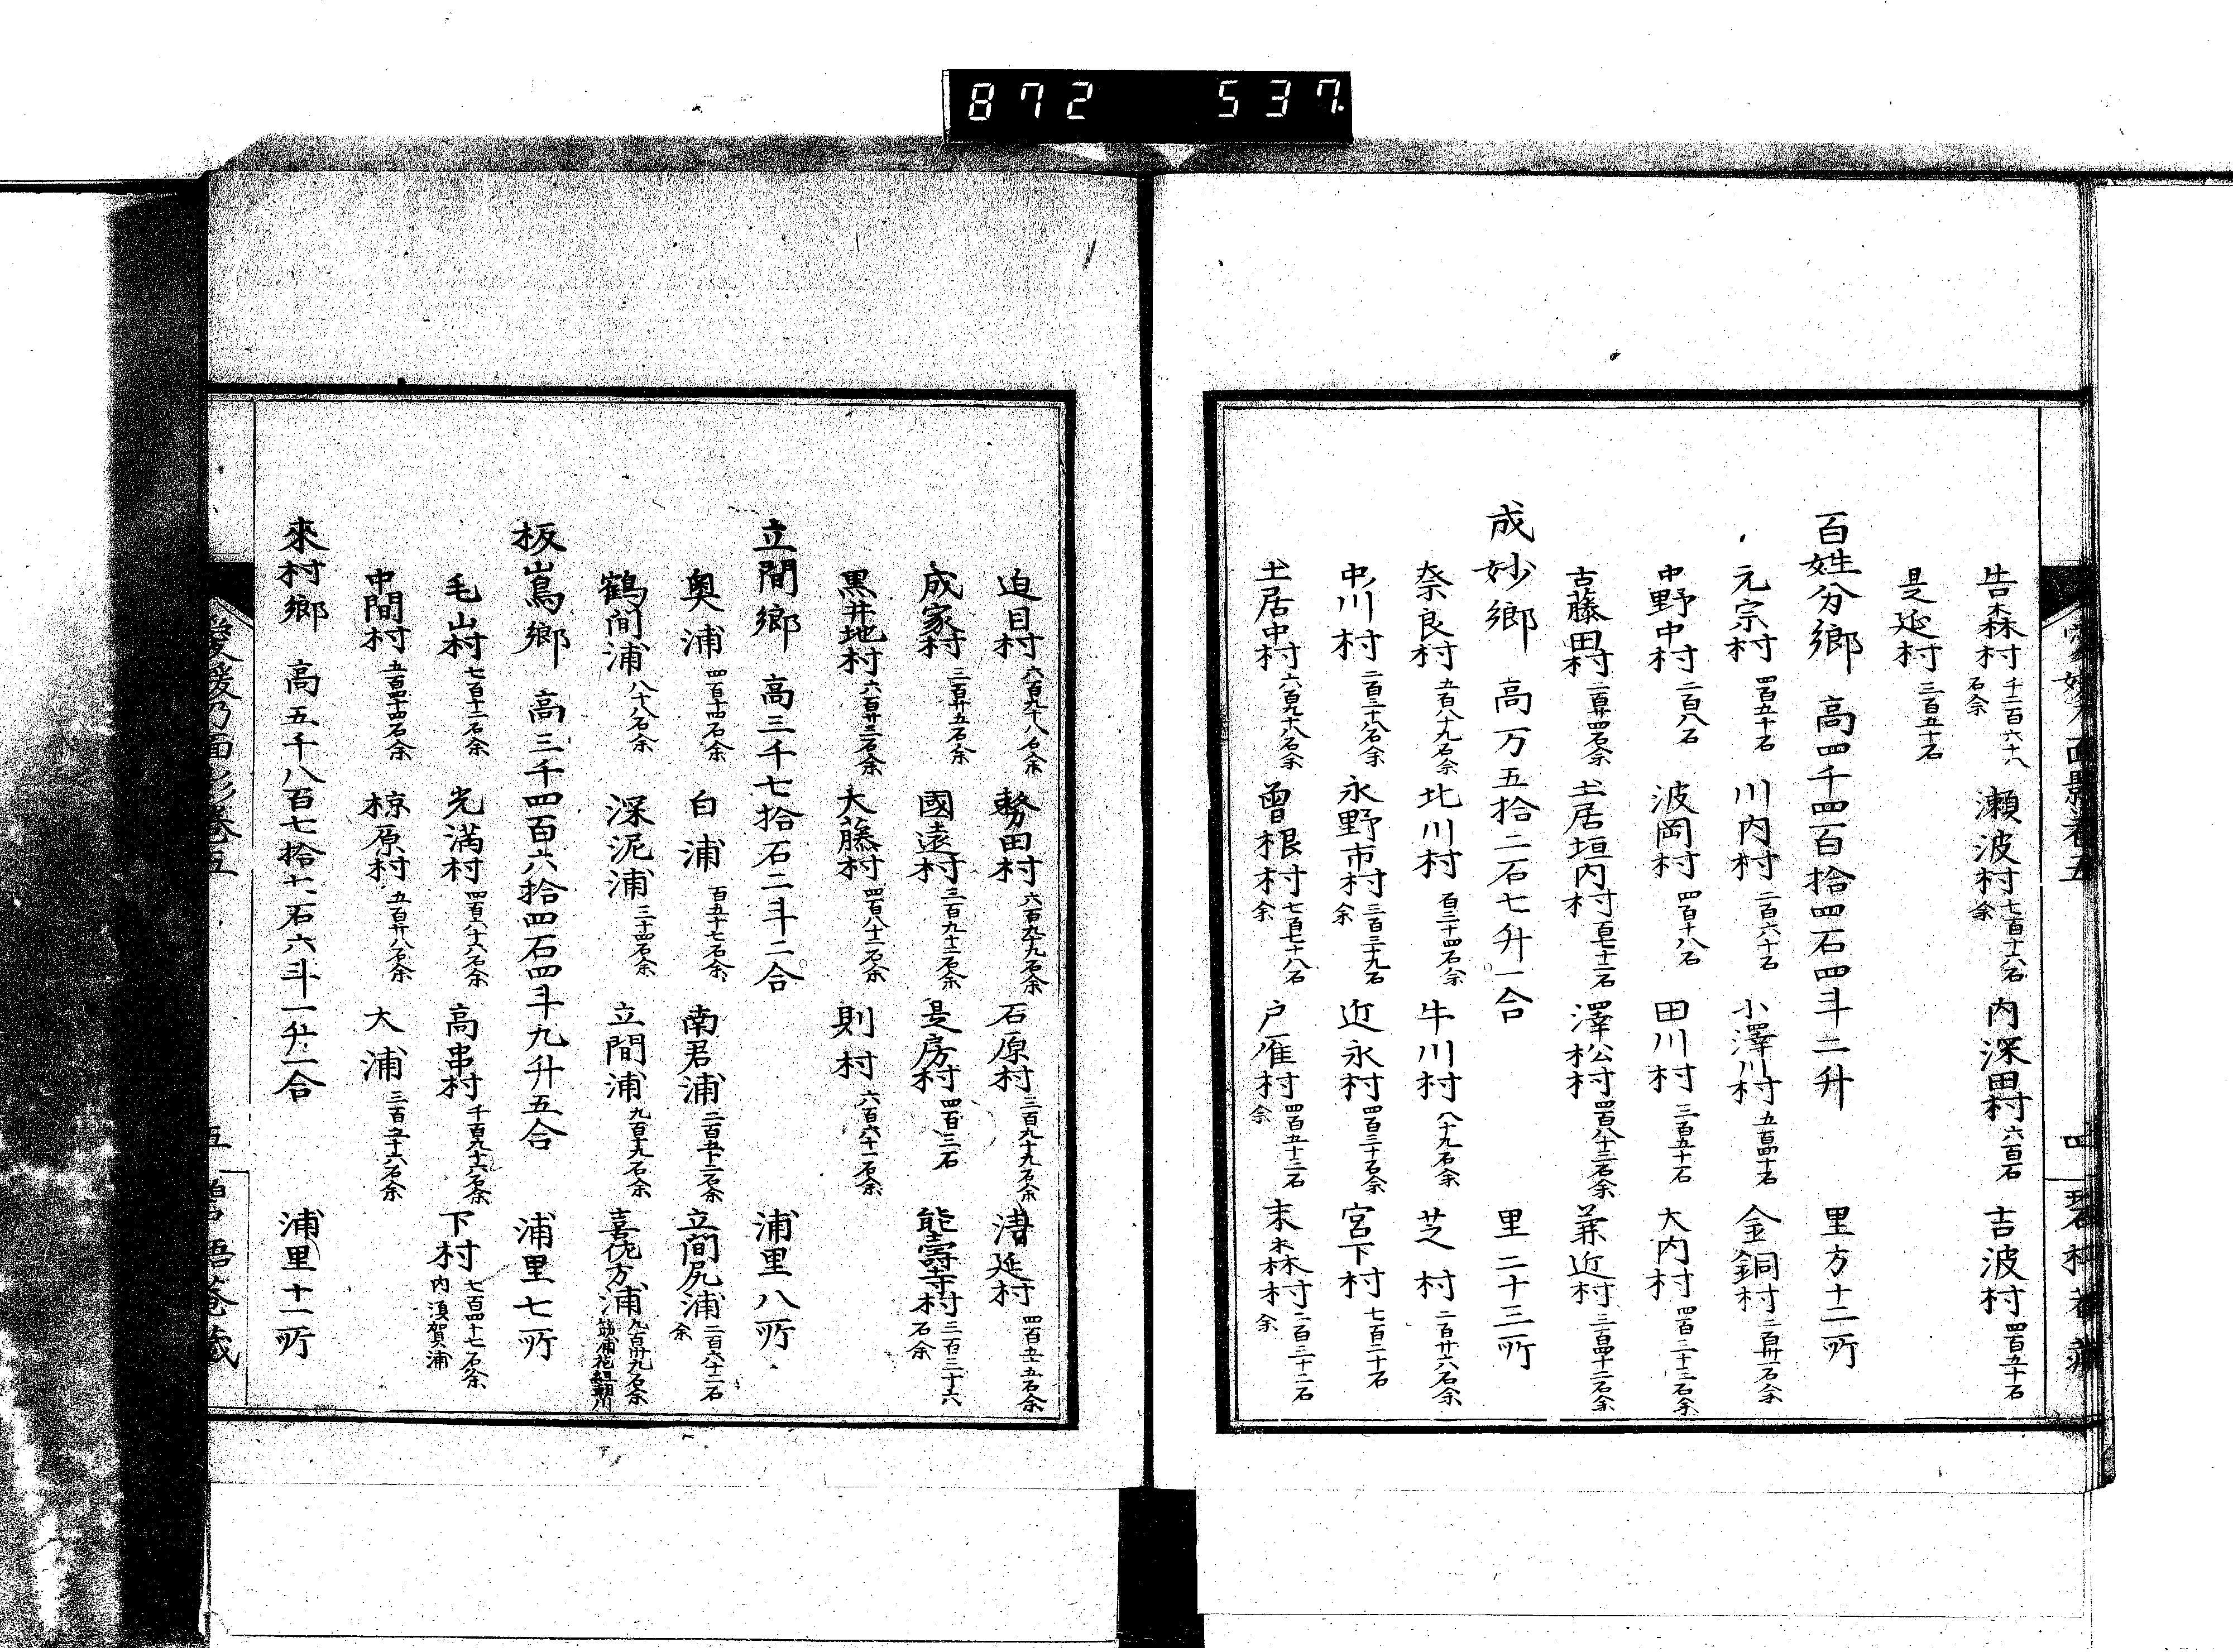 872 537
吉森村 千二百六十八石余 瀬波村 七百十六石余 内深田村 六百石 吉波村 四百五十石
是延村 三百五十石
百姓分郷 高四千四百拾四石四斗二升 里方十二所
元宗村 四百五十石 川内村 二百六十石 小澤川村 五百四十石 金銅村 二百廿一石余
中野中村 二百八石 波岡村 四百十八石 田川村 三百五十石 大内村 四百三十三石余
古藤田村 二百廿四石余 土居垣内村 百七十二石 澤松村 四百八十三石余 兼近村 三百四十二石余
成妙郷 高万五拾二石七升一合 里二十三所
奈良村 五百八十九石余 北川村 百三十四石余 牛川村 八十九石余 芝村 二百廿六石余
中川村 二百三十八石余 永野市村 三百三十九石余 近永村 四百三十石余 宮下村 七百二十石
土居中村 六百九十八石余 曾根村 七百七十八石余 戸雁村 四百五十三石余 末森村 二百三十二石余
迫目村 六百九十八石余 勢田村 六百九十九石余 石原村 三百九十九石余 清延村 四百五十五石余
成家村 三百廿五石余 國遠村 三百九十二石余 是房村 四百三石 能壽寺村 三百三十六石余
黒井地村 六百廿三石余 大藤村 四百八十二石余 則村 六百六十二石余
立間郷 高三千七拾石二斗二合 浦里八所
奥浦 四百十四石余 白浦 百五十七石余 南君浦 二百五十二石余 立間尻浦 二百六十二石余
鶴間浦 八十八石余 深泥浦 三十四石余 立間浦 九百十九石余 喜佐方浦 九百廿九石余
板嶌郷 高三千四百六拾四石四斗九升五合 浦里七所
毛山村 七百十二石余 光満村 四百六十六石余 高串村 千百九十六石余 下村 七百四十七石余 内須賀浦
中間村 五百四十四石余 椋原村 五百廿八石余 大浦 三百五十六石余
來村郷 高五千八百七拾七石六斗一升二合 浦里十一所
愛媛乃面影巻五 五